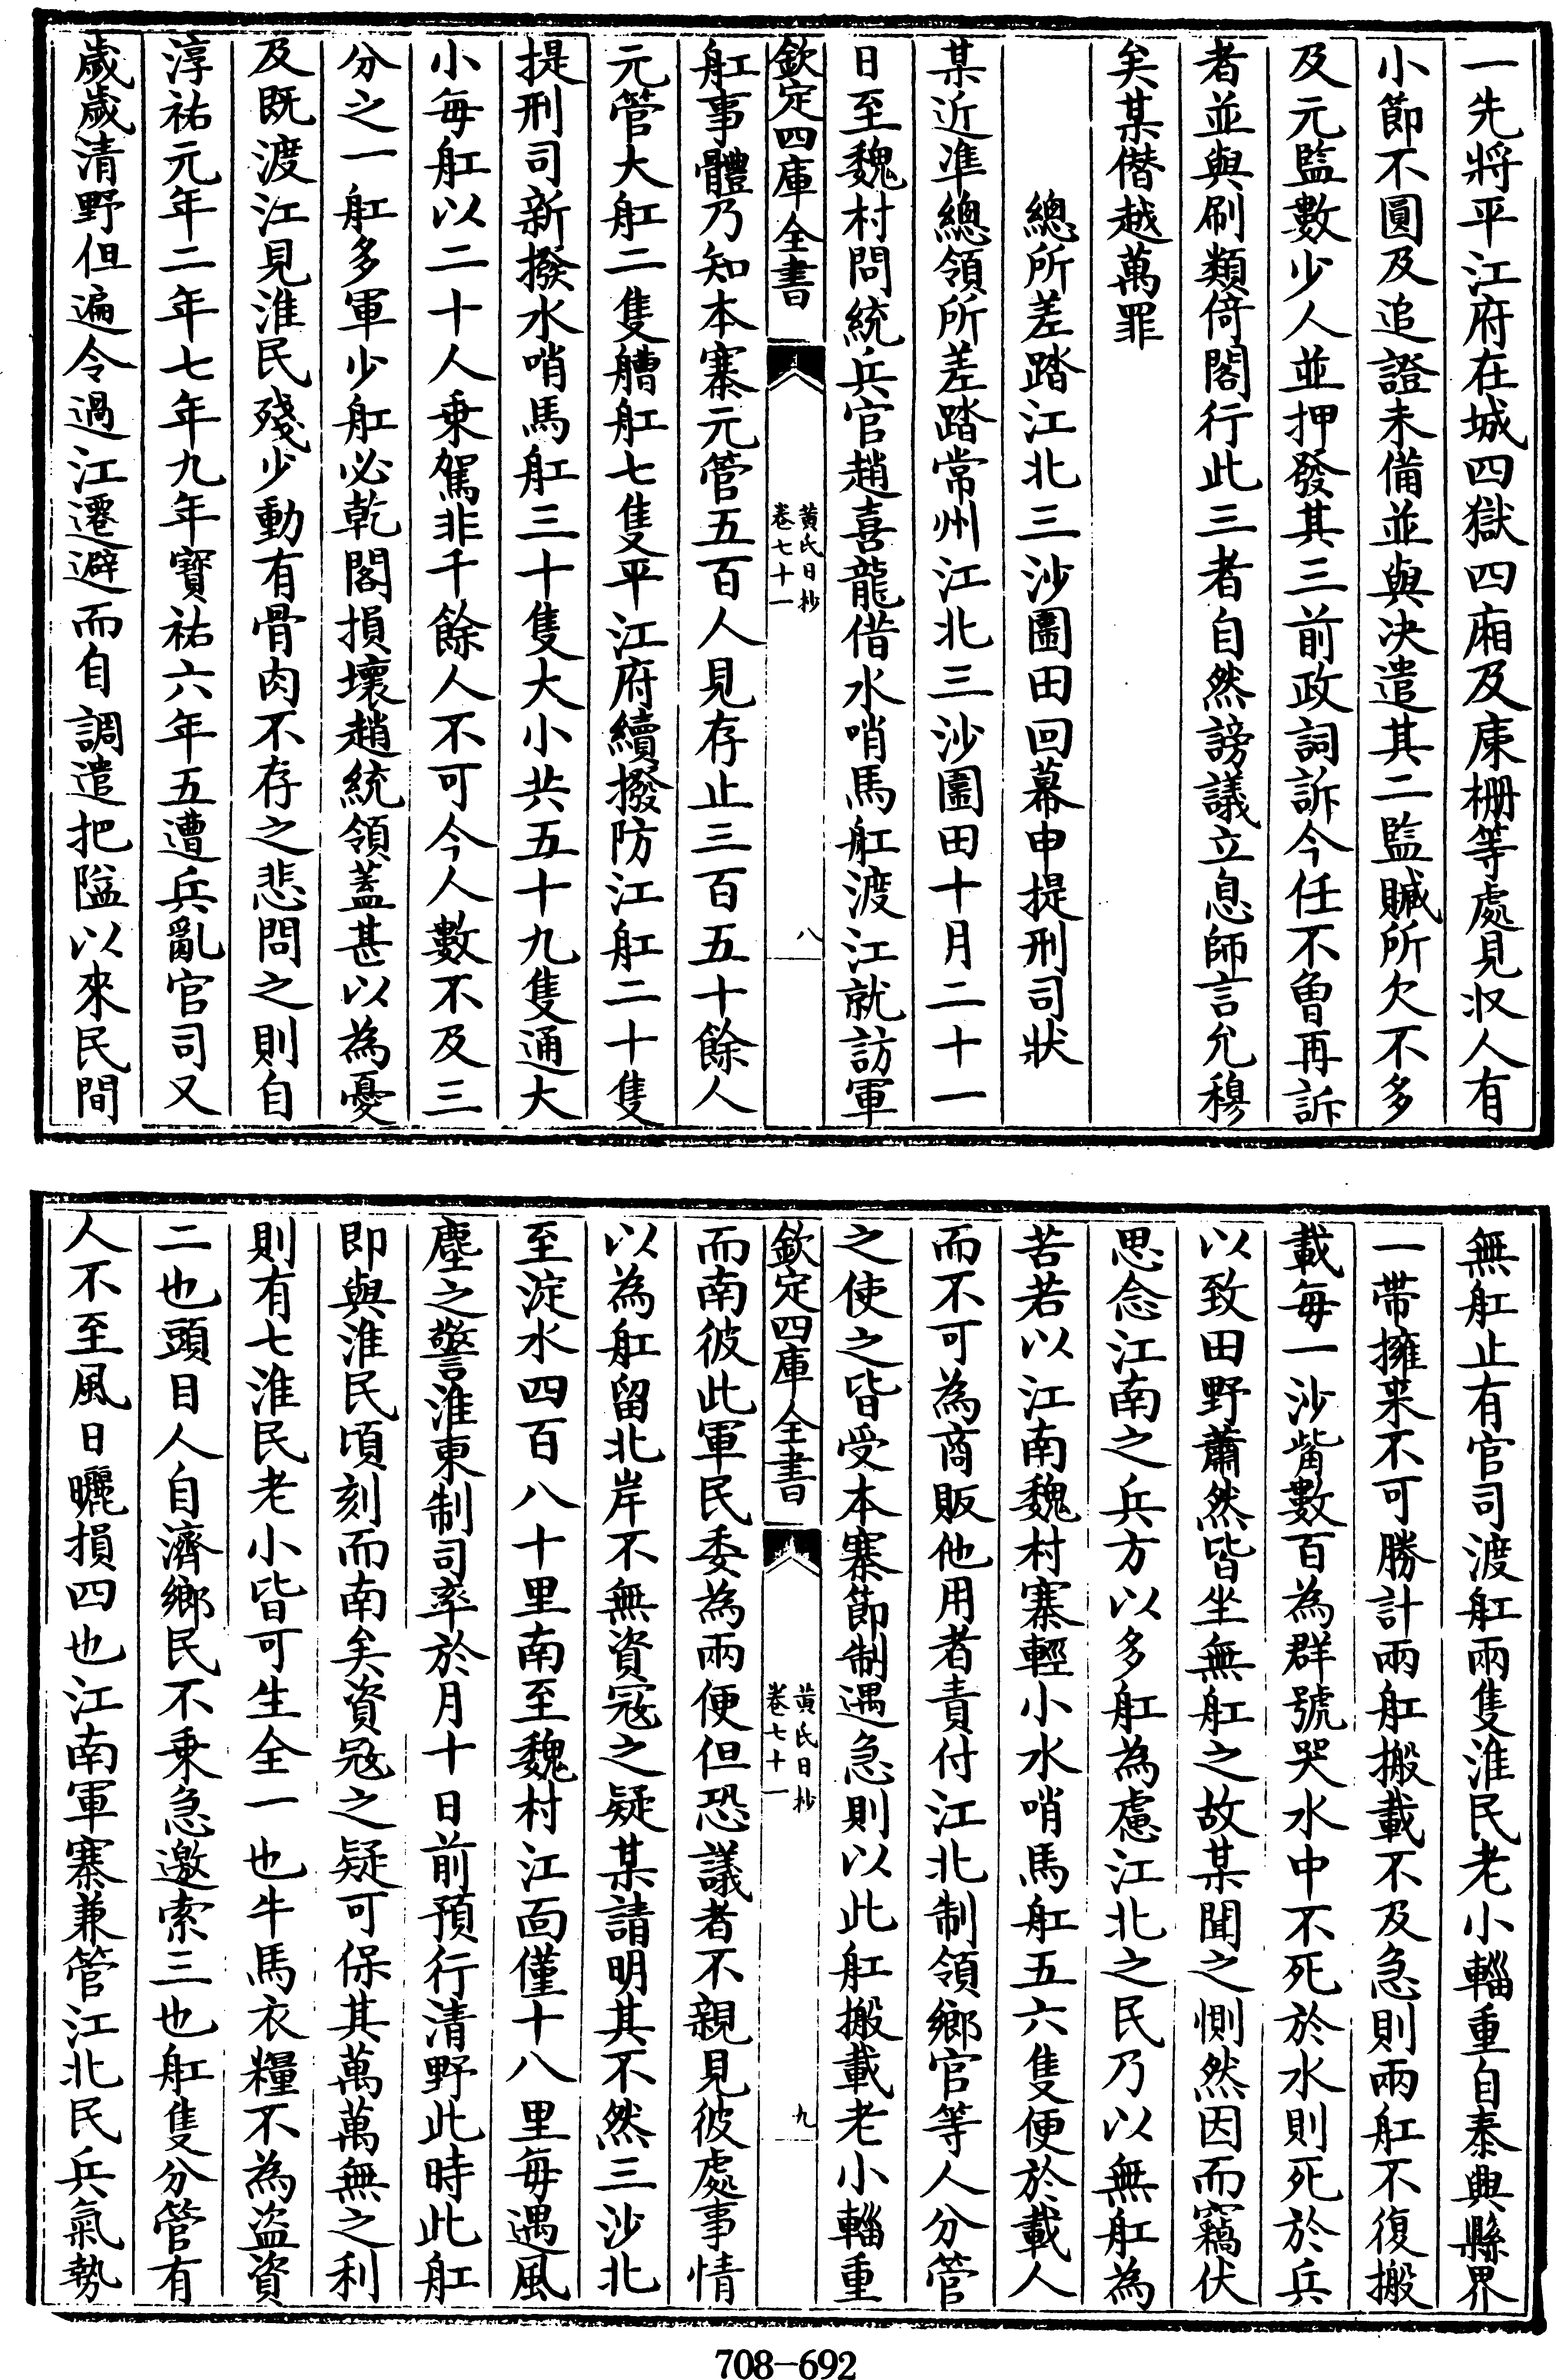 一先將平江府在城四獄四廂及庲栅等處見収人有
小節不圓及追證未備並與决遣其二監贓所欠不多
及元監數少人並押發其三前政詞訴今任不曾再訴
者並與刷類倚閣行此三者自然謗議立息師言允穆
矣某僭越萬罪
總所差踏江北三沙圍田回幕申提刑司狀
某近準總領所差踏常州江北三沙圍田十月二十一
日至魏村問統兵官趙喜龍借水哨馬舡渡江就訪軍
欽定四庫全書
黄氏日抄
卷七十一
八
舡事體乃知本寨元管五百人見存止三百五十餘人
元管大舡二隻艚舡七隻平江府續撥防江舡二十隻
提刑司新撥水哨馬舡三十隻大小共五十九隻通大
小每舡以二十人乗駕非千餘人不可今人數不及三
分之一舡多軍少舡必乾閣損壞趙統領葢甚以為憂
及既渡江見淮民殘少動有骨肉不存之悲問之則自
淳祐元年二年七年九年寶祐六年五遭兵亂官司又
歲歲清野但遍令過江遷避而自調遣把隘以來民間
無舡止有官司渡舡兩隻淮民老小輜重自泰興縣界
一帶擁來不可勝計兩舡搬載不及急則兩舡不復搬
載每一沙觜數百為群號哭水中不死於水則死於兵
以致田野蕭然皆坐無舡之故某聞之惻然因而竊伏
思念江南之兵方以多舡為慮江北之民乃以無舡為
苦若以江南魏村寨輕小水哨馬舡五六隻便於載人
而不可為商販他用者責付江北制領鄉官等人分管
之使之皆受本寨節制遇急則以此舡搬載老小輜重
欽定四庫全書
黄氏日抄
卷七十一
九
而南彼此軍民委為兩便但恐議者不親見彼處事情
以為舡留北岸不無資寇之疑某請明其不然三沙北
至淀水四百八十里南至魏村江面僅十八里每遇風
塵之警淮東制司率於月十日前預行清野此時此舡
即與淮民頃刻而南矣資寇之疑可保其萬萬無之利
則有七淮民老小皆可生全一也牛馬衣糧不為盗資
二也頭目人自濟鄉民不乗急邀索三也舡隻分管有
人不至風日曬損四也江南軍寨兼管江北民兵氣勢
708-692